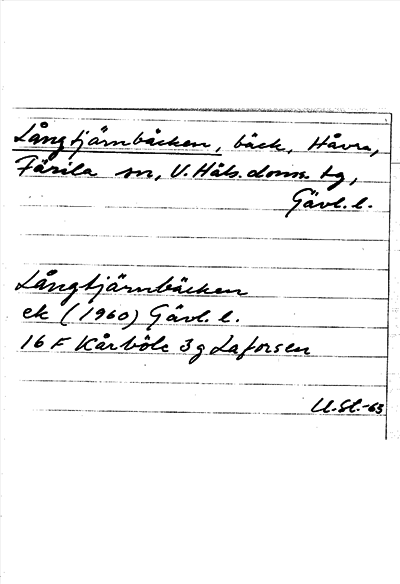 Långtjärnbäcken, bäck, Håvra,
Färila sn, V. Häls. doms. tg,
Gävl. l.
Långtjärnbäcken
ek (1960) Gävl. l.
16 F Kårböle 3 g Laforsen
U. St. -63